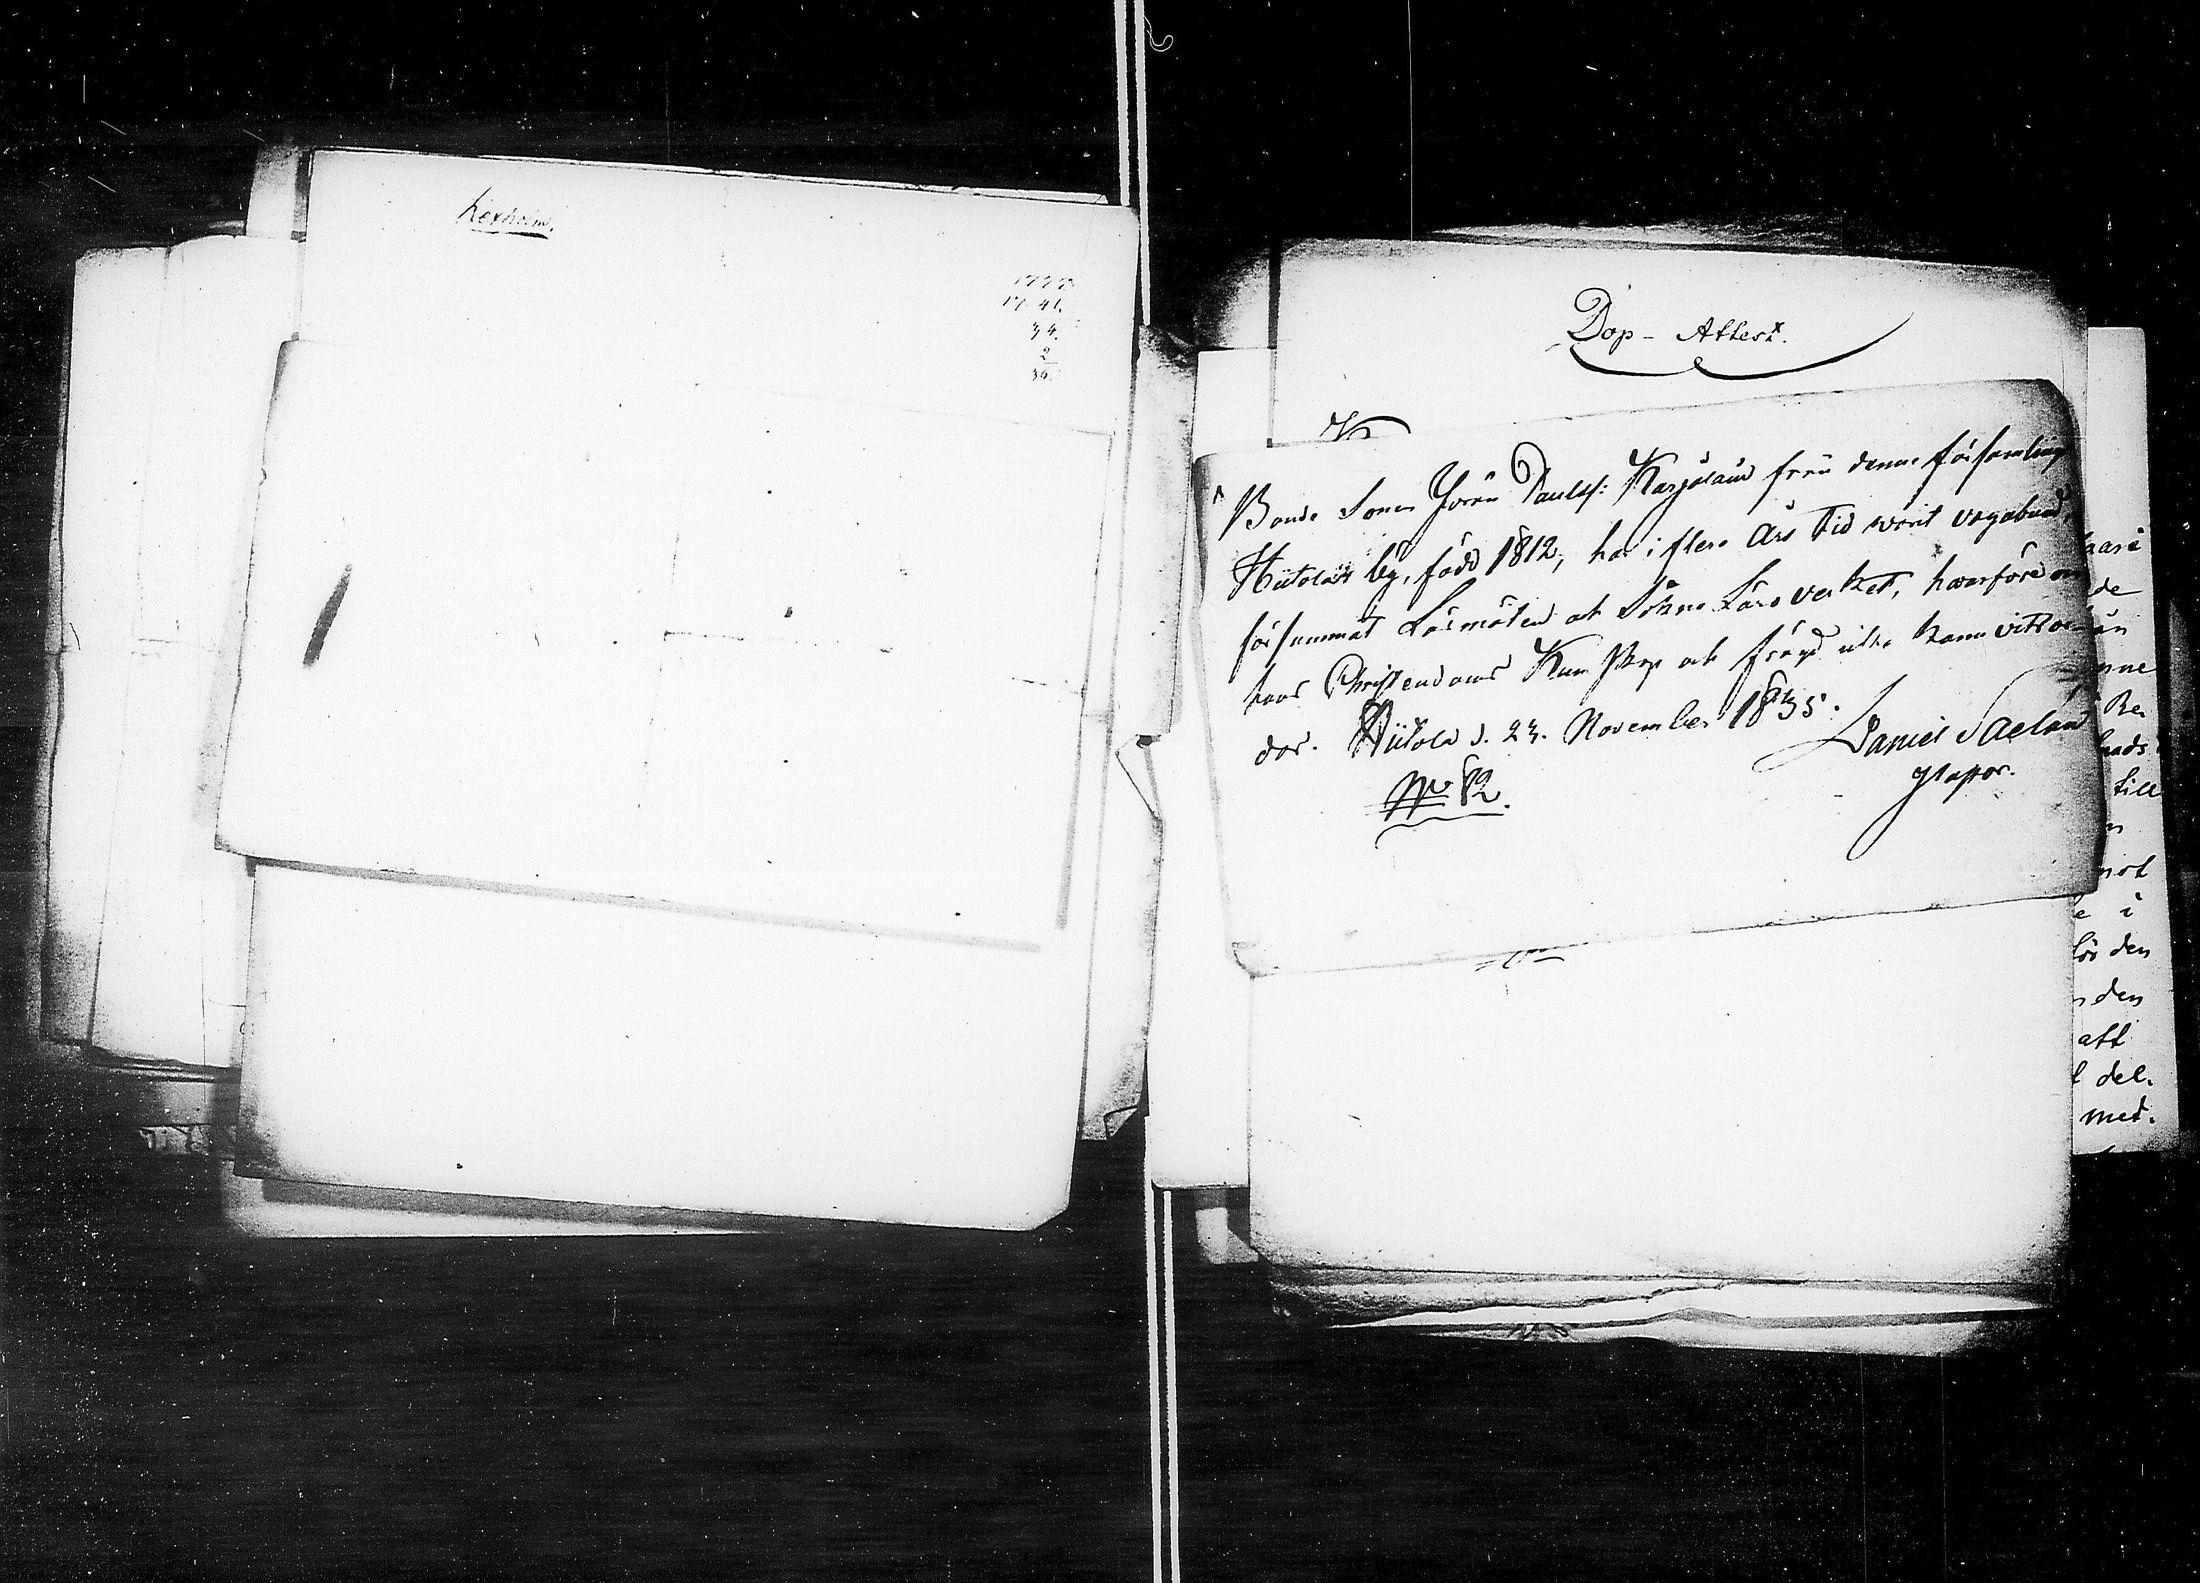 Kexholm.
1777.
17. 41.
34.
2
36.
Dop - Attest.
Bonde Sonen Jören Paulss: Karjalain från denne församling
Hiitola by, född 1812, har i flere Års tid warit vagabund,
försummat Läsmöten och Läroverket, hwarföre
hans Christendoms Kunskap och frägd icke kann vitsor-
das. Hiitola d. 23. November 1835.
Daniel Saelan
No 82.
de
till
i
den
den
att
del.
med.